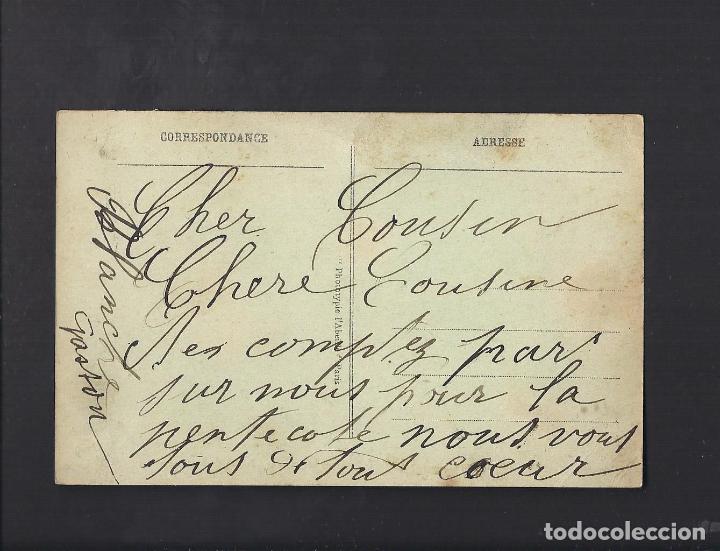 CORRESPONDANCE
ADRESSE
Cher Cousin
Chere Cousine
Nes comptez pas
sur nous pour la
pentecote nous vous
tous de tout coeur
Blanche
Gaston
Phototypie l'Abeille, Paris
todocoleccion